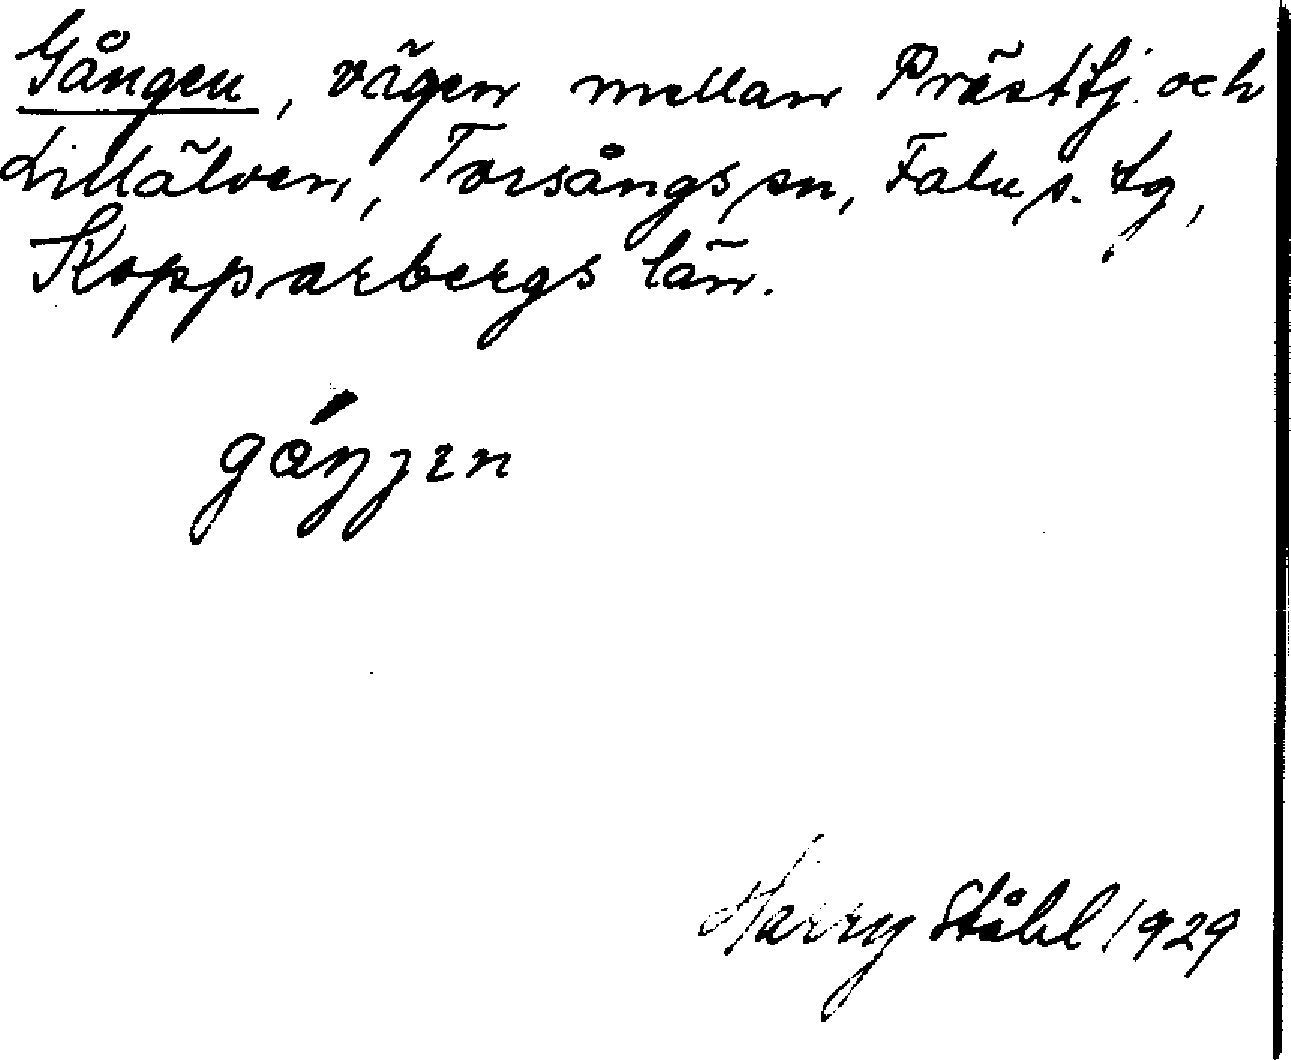 Gången, vägen mellan Prästtj. och
Lillälven, Torsångs sn, Falu s. tg,
Kopparbergs län.
gáŋŋen
Harry Ståhl 1929